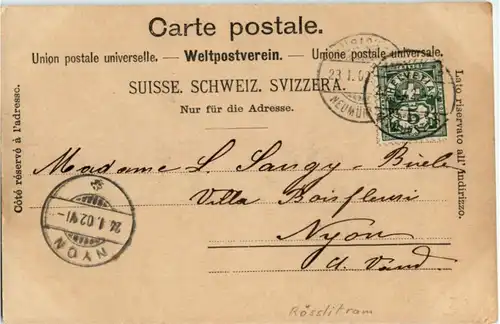 Carte postale.
Union postale universelle. — Weltpostverein. — Unione postale universale.
SUISSE. SCHWEIZ. SVIZZERA.
Nur für die Adresse.
Côté réservé à l'adresse.
Lato riservato all' Indirizzo.
HELVETIA
5
23. I. 02
Madame L. Sangy-Buele
Villa Boisfleuri
Nyon
ct. Vaud.
NYON
24. I. 02
Rösslitram